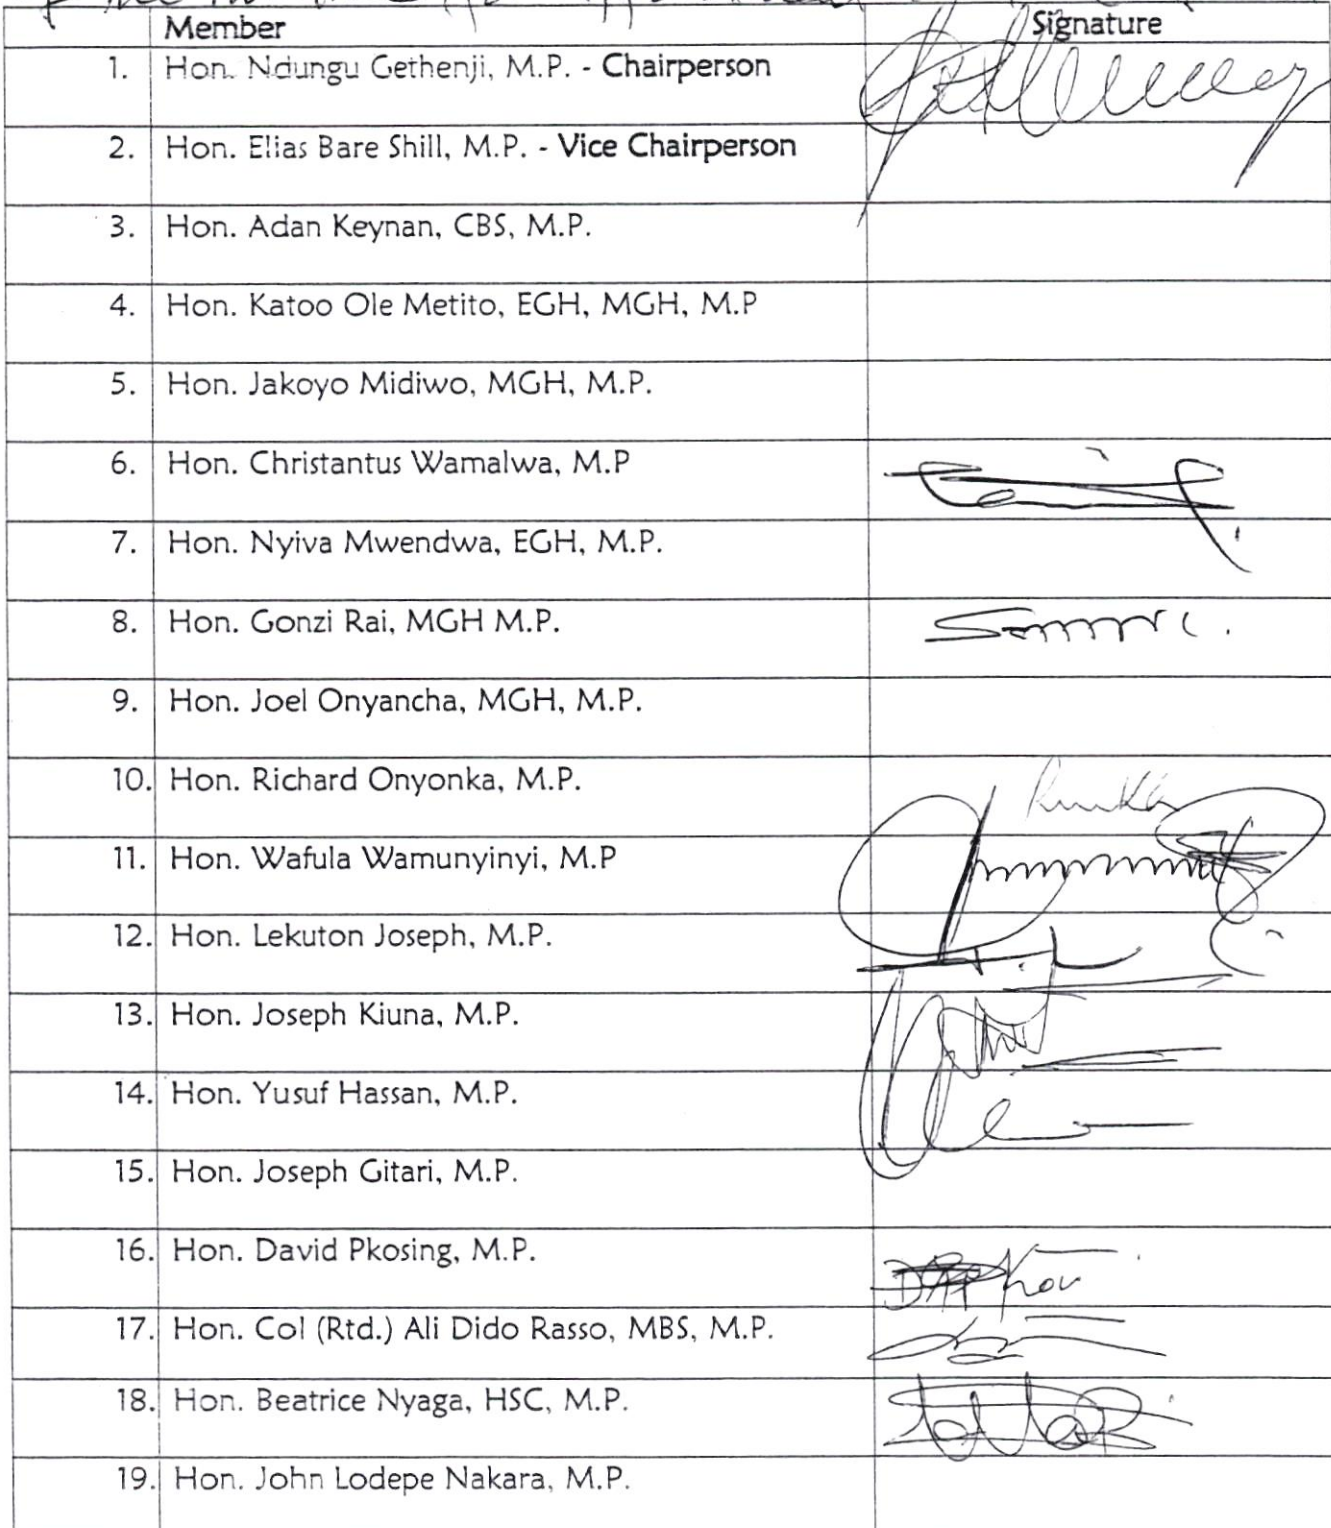 Member Signature
1. Hon. Ndungu Gethenji, M.P. - Chairperson
2. Hon. Elias Bare Shill, M.P. - Vice Chairperson
3. Hon. Adan Keynan, CBS, M.P.
4. Hon. Katoo Ole Metito, EGH, MGH, M.P
5. Hon. Jakoyo Midiwo, MGH, M.P.
6. Hon. Christantus Wamalwa, M.P
7. Hon. Nyiva Mwendwa, EGH, M.P.
8. Hon. Gonzi Rai, MGH M.P.
9. Hon. Joel Onyancha, MGH, M.P.
10. Hon. Richard Onyonka, M.P.
11. Hon. Wafula Wamunyinyi, M.P
12. Hon. Lekuton Joseph, M.P.
13. Hon. Joseph Kiuna, M.P.
14. Hon. Yusuf Hassan, M.P.
15. Hon. Joseph Gitari, M.P.
16. Hon. David Pkosing, M.P.
17. Hon. Col (Rtd.) Ali Dido Rasso, MBS, M.P.
18. Hon. Beatrice Nyaga, HSC, M.P.
19. Hon. John Lodepe Nakara, M.P.